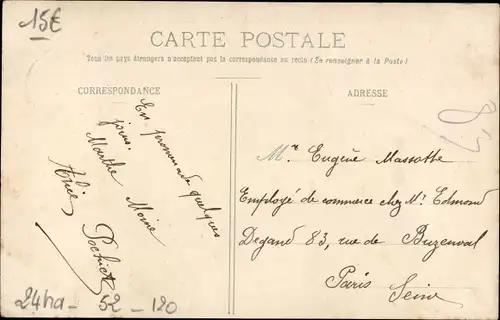 15€
CARTE POSTALE
Tous les pays étrangers n'acceptent pas la correspondance au recto (Se renseigner à la Poste)
CORRESPONDANCE
ADRESSE
En promenade quelques
jours.
Marthe Moine
Alice Pochiet
Mr Eugène Massotte
Employé de commerce chez Mr Edmond
Degand 83, rue de Buzenval
Paris
Seine
24ha - 52 - 120